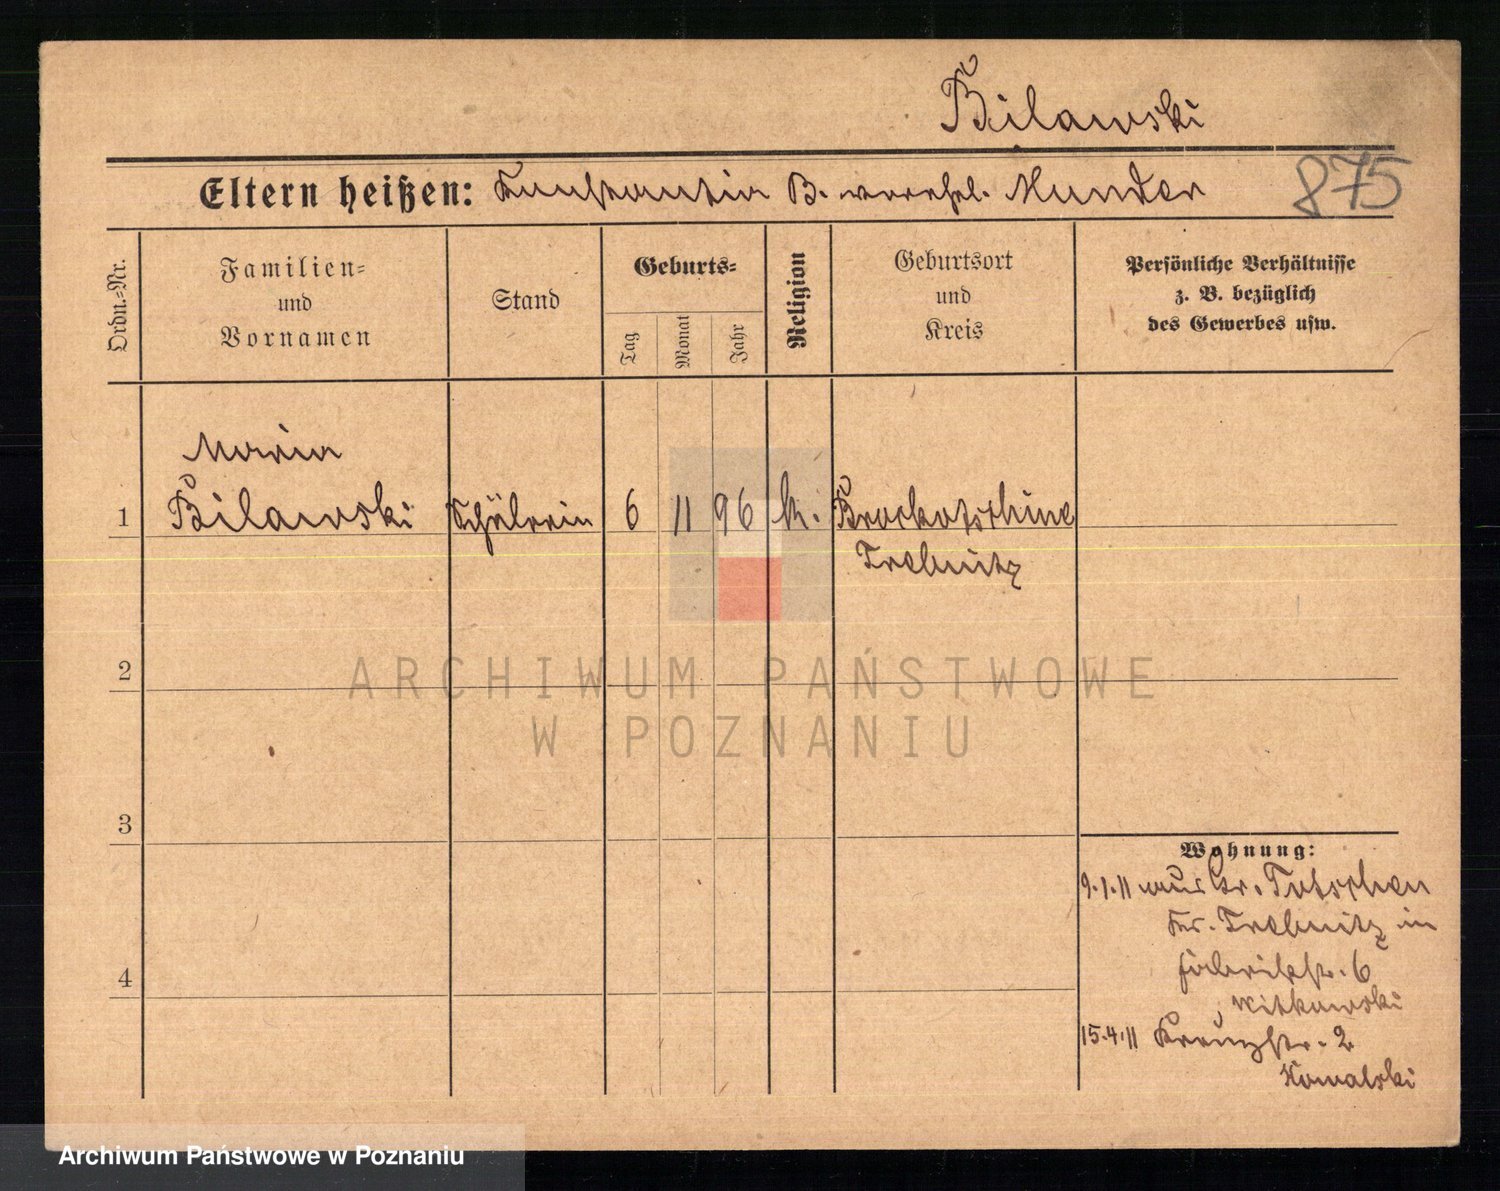 Bilawski
Eltern heißen: Konstantin B. verehel. Munder
875
Ordn.=Nr.
Familien=
und
Vornamen
Stand
Geburts=
Tag
Monat
Jahr
Religion
Geburtsort
und
Kreis
Persönliche Verhältnisse
z. B. bezüglich
des Gewerbes usw.
Maria
1 Bilawski Schülerin 6 11 96 k. Brockotschine
Trebnitz
2
ARCHIWUM PAŃSTWOWE
W POZNANIU
3
Wohnung:
9.1.11 aus Gr. Totschen
Kr. Trebnitz in
Fabrikstr. 6
4
Witkowski
15.4.11 Kreuzstr. 2
Kowalski
Archiwum Państwowe w Poznaniu